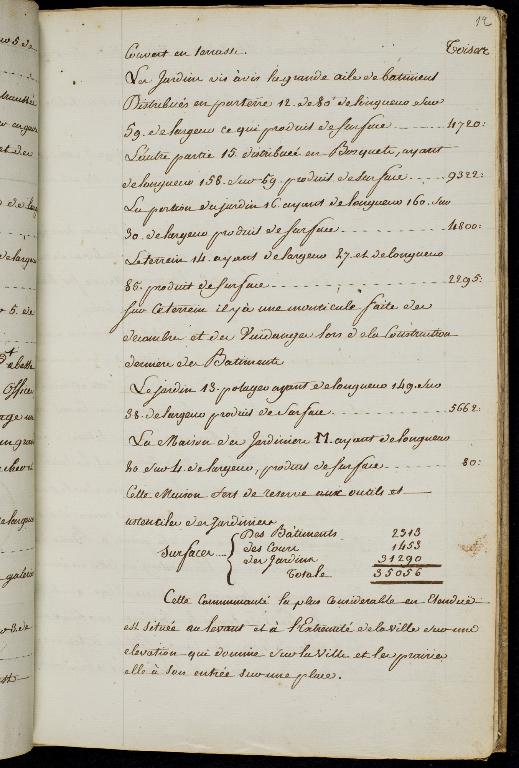 12
Couvert en terrasse. Toisage
Les Jardin vis àvis la grande aile de batiment
Distribuées en parterre 12. de 80 de longueur sur
59. de largeur ce qui produit de surface 4720:
L'autre partie 15. distribuée en Bosquets, ayant
de longueur 158. sur 59. produit de surface 9322:
La portion du jardin 16. ayant de longueur 160. sur
30. de largeur produit de surface 4800:
Le terrein 14. ayant de largeur 27. et de longueur
85. produit de surface 2295:
sur ce terrein il y à une monticule faite des
decombre et des Vuidanges lors de la Construction
derniere des Batiments
Le jardin 13. potager ayant de longueur 149. sur
38. de largeur produit de surface 5662:
La Maison des Jardiniers M. ayant de longueur
20 sur 4. de largeur, produit de surface 80:
Cette Maison sert de reserve aux outils et
ustentiles des Jardiniers
Surfaces
Des Bâtiments 2313
des Cours 1453
des Jardins 31290
Totale 35056
Cette Communauté la plus considerable en Etendüe
est située au levant et à l'Extremité de la Ville sur une
elevation qui domine sur la Ville et les prairies
elle à son entrée sur une place.